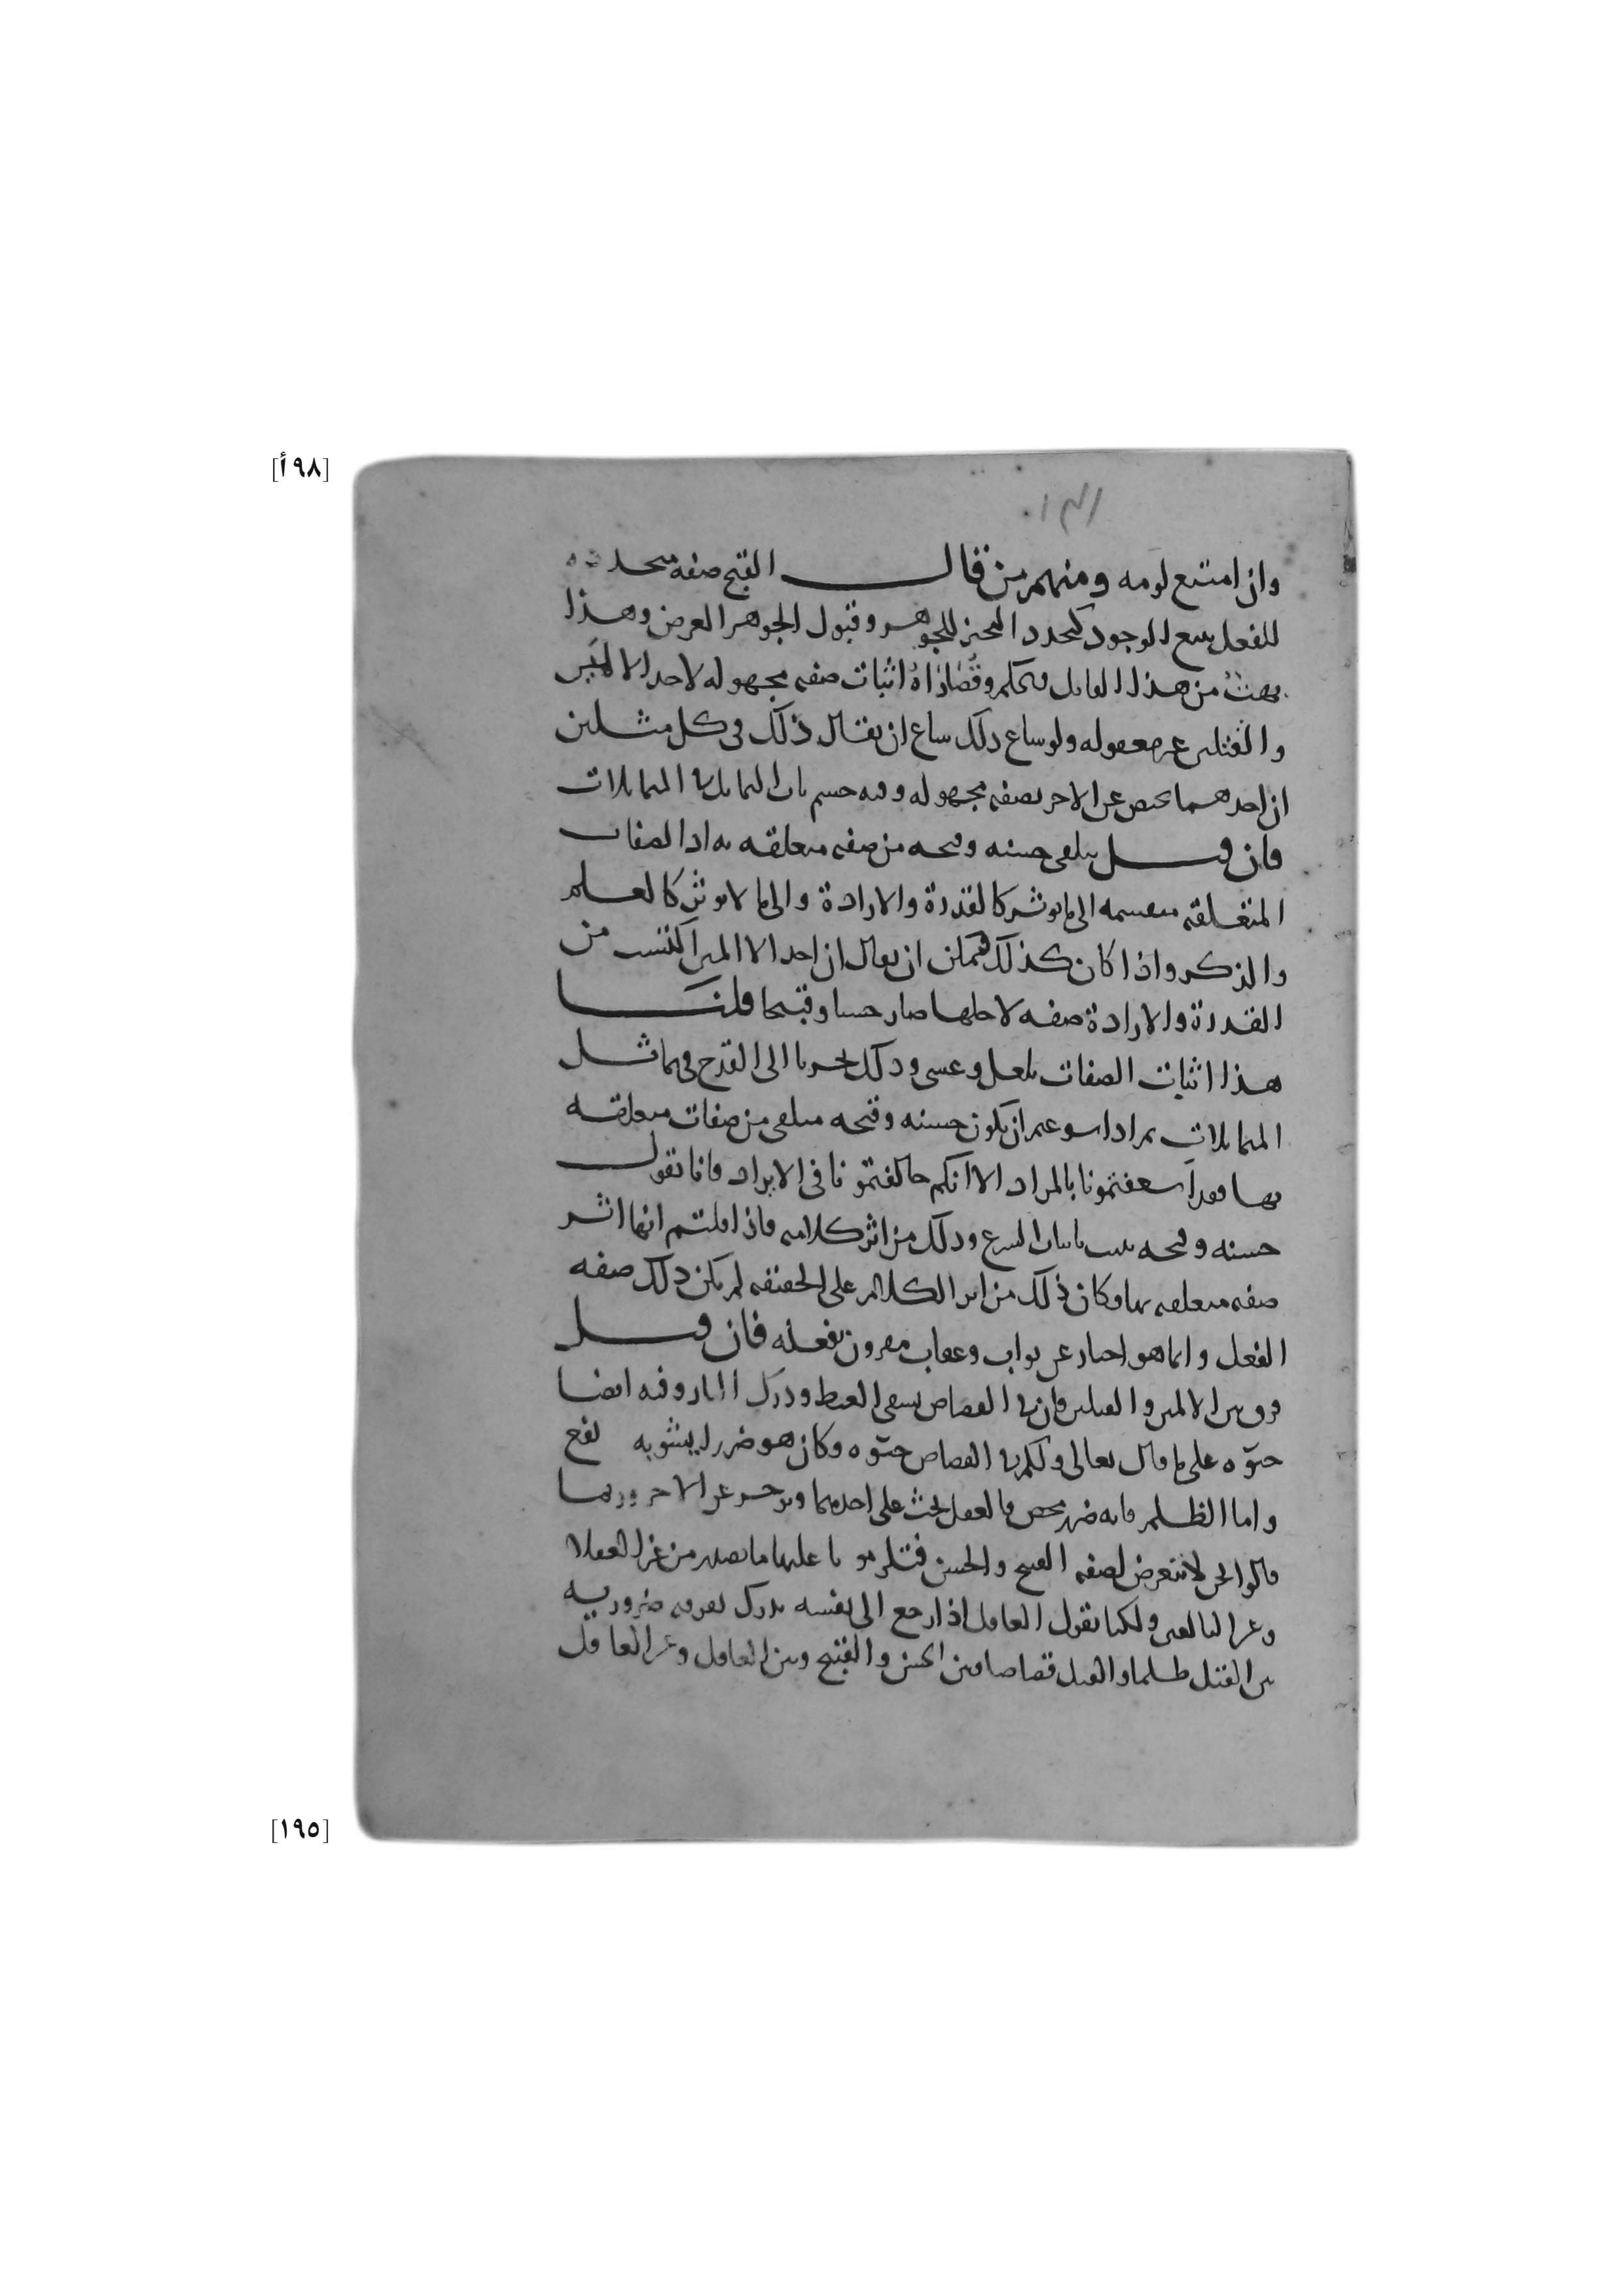 [٩٨أ]
وان امتنع لومه ومنهم من قال القبح صفه متحدده
للفعل يتبع الوجود كتجدد التحيز للجوهر وقبول الجوهر العرض وهذا
بهت من هذا القايل وتحكم اثبات صفه مجهوله لاحد الالمين
والقتلين غير معقوله ولو ساغ ذلك ساغ ان يقال ذلك في كل مثلين
ان احدهما يختص عن الاخر بصفه مجهوله وفيه حسم باب التماثل في المتماثلات
فان قيل يتلقى حسنه وقبحه من صفه متعلقه به اذ الصفات
المتعلقه منقسمه الى ما يوثر كالقدرة والارادة والى ما لا يوثر كالعلم
والذكر واذا كان كذلك فيمكن ان يقال ان احد الالمين اكتسب من
القدرة والارادة صفه لاجلها صار حسنا وقبيحا قلنا
هذا اثبات الصفات بلعل وعسى وذلك يجرنا الى القدح في تماثل
المتماثلات ثم اذا ان يكون حسنه وقبحه متلقى من صفات متعلقه
بها فقد اسعفتمونا بالمراد الا انكم خالفتمونا في الايراد فانا نقول
حسنه وقبحه يثبت باثبات الشرع وذلك من اثر كلامه فاذا قلتم انها اثر
صفه متعلقه بها وكان ذلك من اثر الكلام على الحقيقه لم يكن ذلك صفه
الفعل وانما هو اخبار عن ثواب وعقاب مقرون بفعله فان قيل
فرق بين الالمين والقتلين فان في القصاص تشفي الغيظ ودرك الثار وفيه ايضا
حيوه على ما قال تعالى ولكم في القصاص حيوه وكان هو ضررا يشوبه نفع
واما الظلم فانه ضرر محض فالعقل يحث على احدهما ويزجر عن الاخر وربما
قالوا نحن لا نتعرض لصفه القبح والحسن ما يصدر من غير العقلا
ولكنا نقول العاقل اذا رجع الى نفسه يدرك تفرقه ضروريه
بين القتل ظلما والقتل قصاصا وبين الحسن والقبيح وبين العاقل وغير العاقل
[١٩٥]